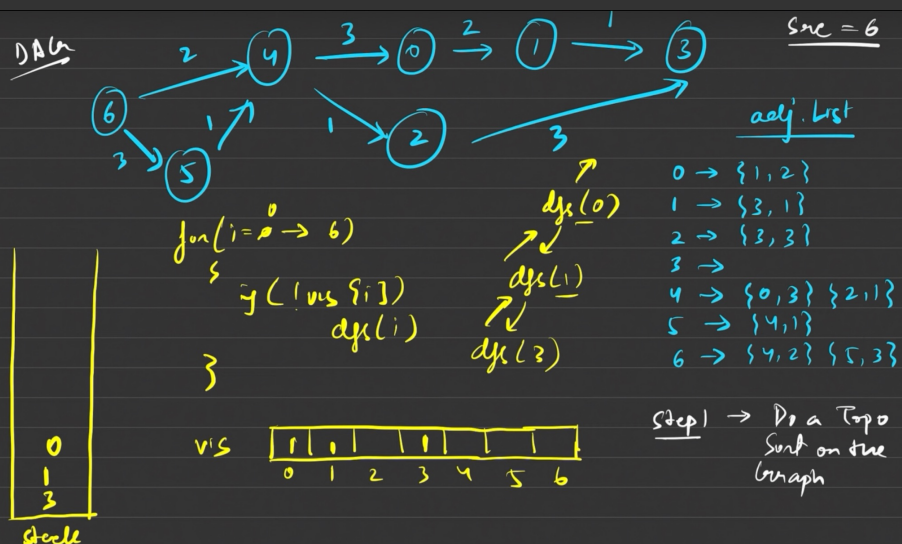 DAG
src = 6
2
3
2
1
4
0
1
3
6
3
1
1
2
3
5
adj. List
0 → {1,2}
1 → {3,1}
2 → {3,3}
3 →
4 → {0,3} {2,1}
5 → {4,1}
6 → {4,2} {5,3}
for(i=0 → 6)
{
if (!vis[i])
dfs(i)
}
dfs(0)
dfs(1)
dfs(3)
vis
1 1 1
0 1 2 3 4 5 6
0
1
3
stack
Step1 → Do a Topo
Sort on the
Graph